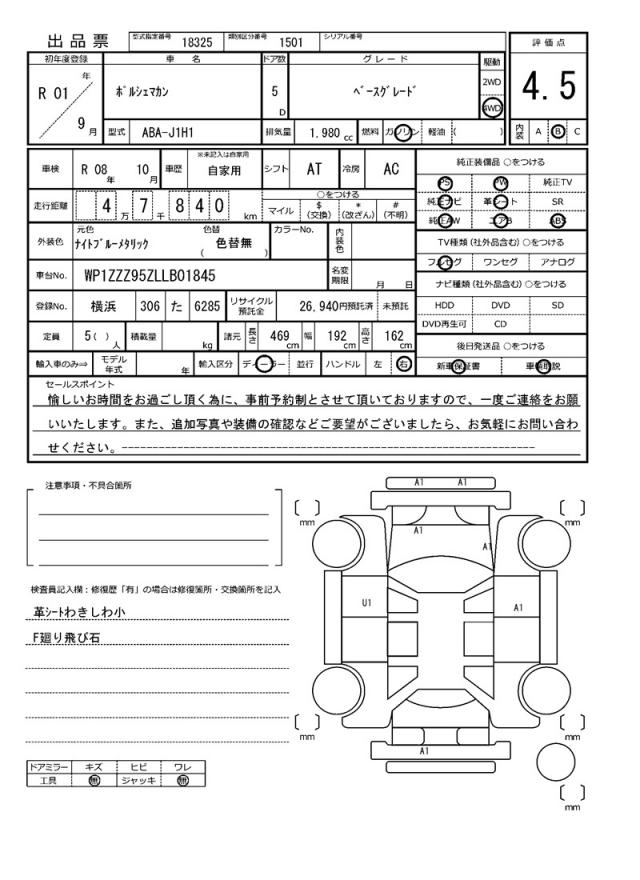 出品票
型式指定番号 18325 類別区分番号 1501 シリアル番号
評価点
4.5
内装 A B C
初年度登録 車名 ドア数 グレード 駆動
R 01 年 9 月
ポルシェマカン 5 D ベースグレード 2WD 4WD
型式 ABA-J1H1 排気量 1,980 cc 燃料 ガソリン 軽油 ( )
車検 R 08 年 10 月 車歴 ※未記入は自家用 自家用 シフト AT 冷房 AC
走行距離 4 万 7 千 8 4 0 km
○をつける
マイル $(交換) *(改ざん) #(不明)
外装色 元色 ナイトブルーメタリック 色替 ( 色替無 ) カラーNo. 内装色
車台No. WP1ZZZ95ZLLB01845 名変期限 月 日
登録No. 横浜 306 た 6285 リサイクル預託金 26,940円預託済 未預託
定員 5( ) 人 積載量 kg 諸元 長さ 469 cm 幅 192 cm 高さ 162 cm
輸入車のみ⇒ モデル年式 年 輸入区分 ディーラー 並行 ハンドル 左 右
純正装備品 ○をつける
PS PW 純正TV
純正ナビ 革シート SR
純正AW エアB ABS
TV種類 (社外品含む) ○をつける
フルセグ ワンセグ アナログ
ナビ種類 (社外品含む) ○をつける
HDD DVD SD
DVD再生可 CD
後日発送品 ○をつける
新車保証書 車輌取説
セールスポイント
愉しいお時間をお過ごし頂く為に、事前予約制とさせて頂いておりますので、一度ご連絡をお願
いいたします。また、追加写真や装備の確認などご要望がございましたら、お気軽にお問い合わ
せください。------------------------------------------------------------
注意事項・不具合箇所
検査員記入欄：修復歴「有」の場合は修復箇所・交換箇所を記入
革シートわきしわ小
F廻り飛び石
ドアミラー キズ ヒビ ワレ
工具 無 ジャッキ 無
A1 A1
A1
A1
U1
A1
A1
mm mm
mm mm
mm